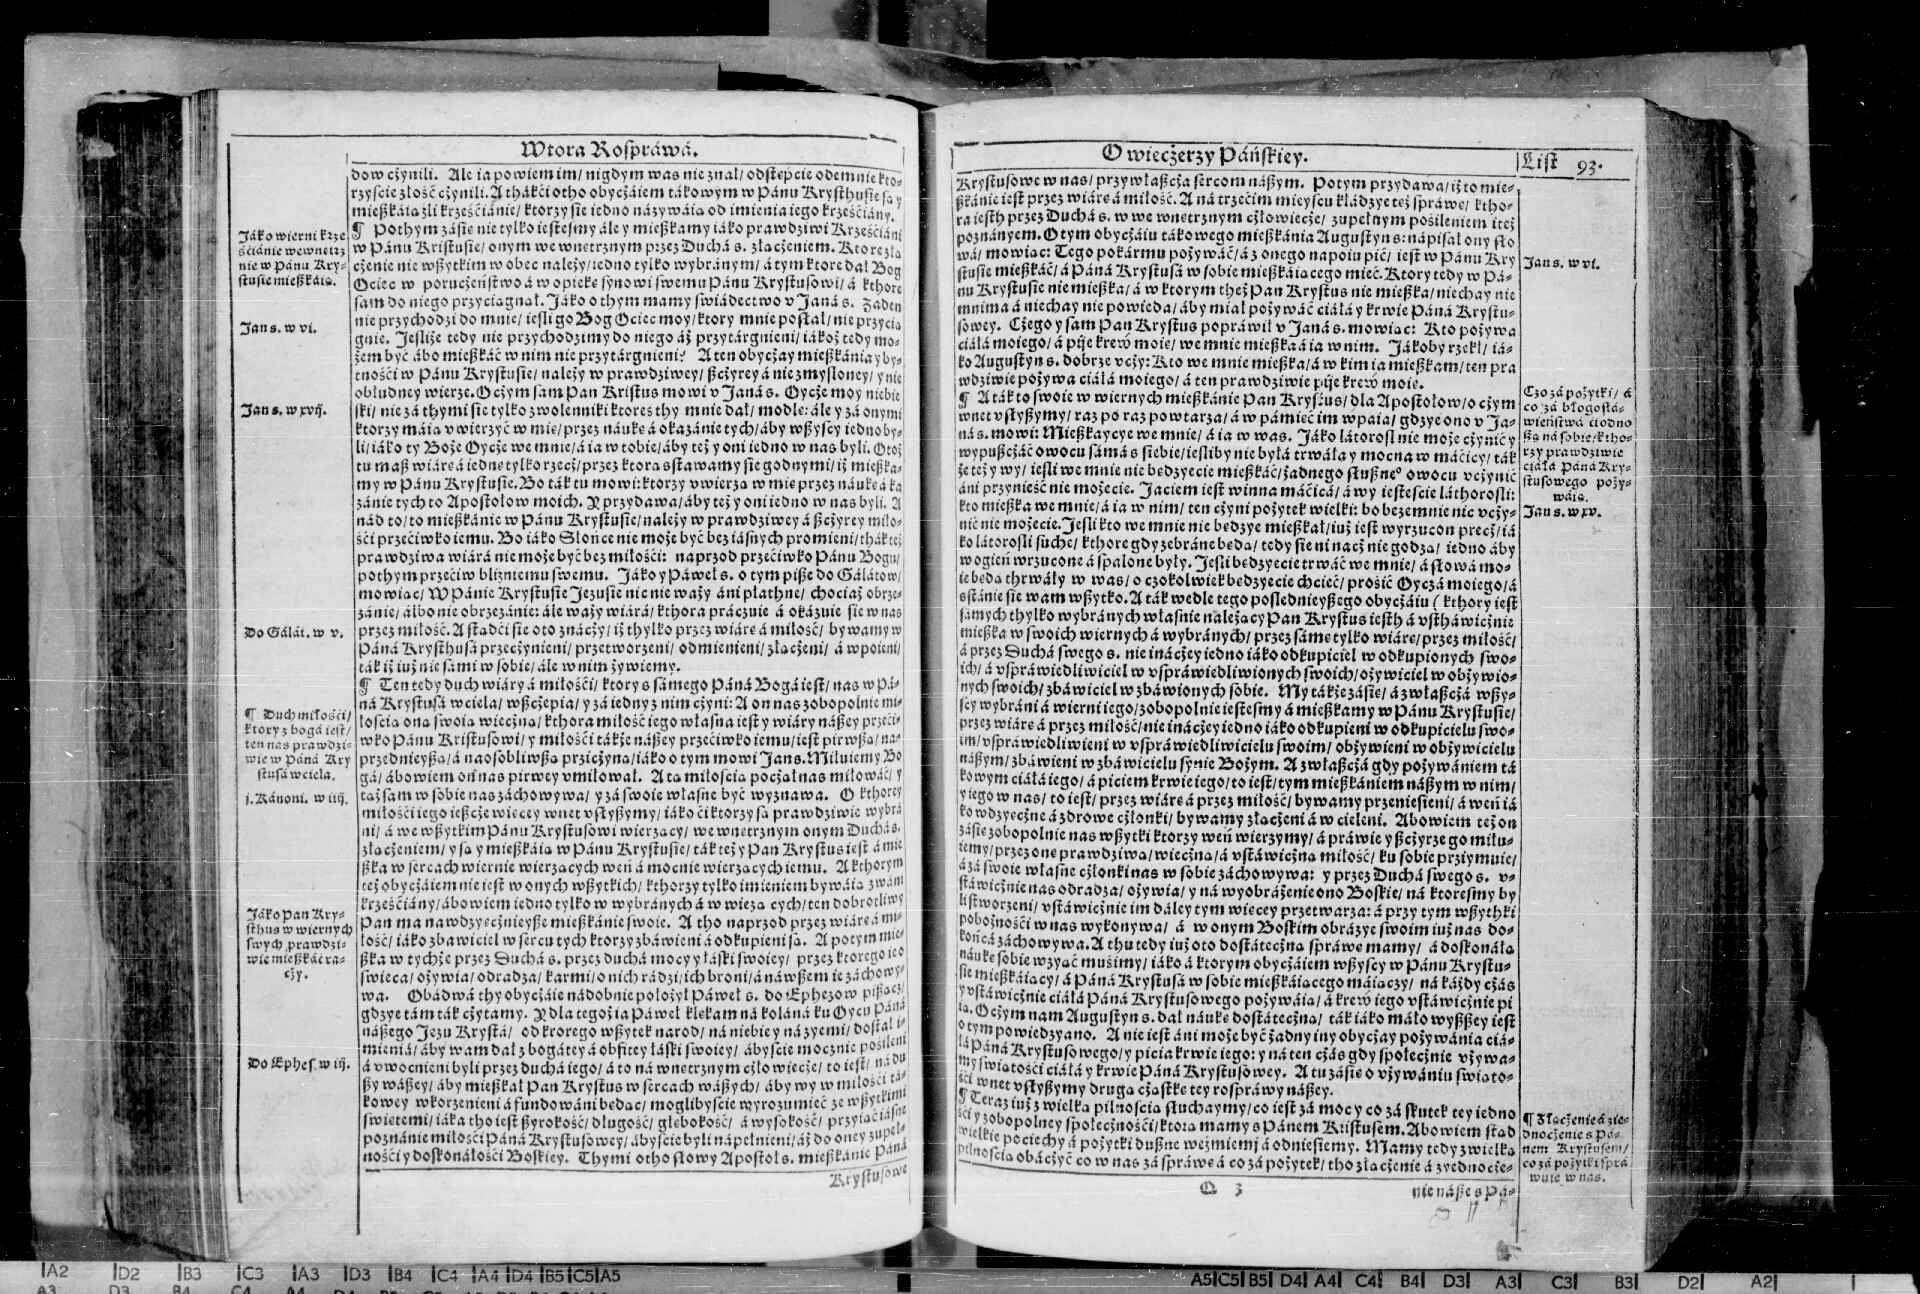 Wtora Rosprawá.
dow cżynili. Ale ia powiem im/ nigdym was nie znał/ odstępcie odemnie kto-
rzyście złość cżynili. A thákci otho obycżáiem tákowym w Pánu Krysthusie są y
mießkáią źli krześćiánie/ ktorzy sie iedno názywáią od imieniá iego krześćiány.
Jáko wierni krze
śćiánie wewnętrz
nie w Pánu Kry-
stusie mießkáią.
¶ Pothym zásie nie tylko iestesmy ále y mießkamy iáko prawdziwi Krześćiáni
w Pánu Kristusie/ onym we wnętrznym przez Duchá s. złącżeniem. Ktore złą
cżenie nie wßytkim w obec należy/ iedno tylko wybránym/ á tym ktore dał Bog
Ociec w porucżeństwo á w opiekę synowi swemu Pánu Krystusowi/ á kthore
sam do niego przyciągnął. Jáko o thym mamy swiádectwo v Janá s. Zaden
Jan s. w vi.
nie przychodzi do mnie/ iesli go Bog Ociec moy/ ktory mnie posłał/ nie przycią
gnie. Jesliże tedy nie przychodzimy do niego áż przytárgnieni/ iákoż tedy mo-
żem być ábo mießkáć w nim nie przytárgnieni? A ten obycżay mießkánia y by-
tności w Pánu Krystusie/ należy w prawdziwey/ ßcżyrey á nie zmysloney/ y nie
obłudney wierze. O cżym sam Pan Kristus mowi v Janá s. Oycże moy niebie
Jan s. w xvij.
ski/ nie zá thymi sie tylko zwolenniki ktores thy mnie dał/ modlę: ále y zá onymi
ktorzy máią vwierzyć w mię/ przez náukę á okazánie tych/ áby wßyscy iedno by-
li/ iáko ty Boże Oycże we mnie/ á ia w tobie/ áby też y oni iedno w nas byli. Otoż
tu maß wiárę á iednę tylko rzecż/ przez ktorą sstawamy się godnymi/ iż mießka-
my w Pánu Krystusie. Bo ták tu mowi: ktorzy vwierzą w mię przez náukę á ka
zánie tych to Apostołow moich. Y przydawa/ áby też y oni iedno w nas byli. A
nád to/ to mießkánie w Pánu Krystusie/ należy w prawdziwey á ßcżyrey miło-
ści przećiwko iemu. Bo iáko Słońce nie może być bez iásnych promieni/ thák też
prawdziwa wiárá nie może być bez miłości: naprzod przećiwko Pánu Bogu/
pothym przećiw bliźniemu swemu. Jáko y Páweł s. o tym piße do Gálátow/
mowiąc/ W Pánie Krystusie Jezusie nic nie waży áni płathne/ chociaż obrze-
zánie/ álbo nie obrzezánie: ále waży wiárá/ kthora prácuie á okázuie się w nas
Do Gálát. w v.
przez miłość. A stądći sie oto znácży/ iż thylko przez wiárę á miłość/ bywamy w
Páná Krysthusá przecżynieni/ przetworzeni/ odmienieni/ złącżeni/ á wpoieni/
ták iż iuż nie sami w sobie/ ále w nim żywiemy.
¶ Ten tedy duch wiáry á miłości/ ktory s sámego Páná Bogá iest/ nas w Pá-
ná Krystusá wciela/ wßcżepia/ y zá iedny z nim cżyni: A on nas zobopolnie mi-
¶ Duch miłości/
ktory z bogá iest/
ten nas prawdzi-
wie w Páná Kry
stusá wciela.
łością oną swoią wiecżną/ kthora miłość iego własna iest y wiáry nászey przeci-
wko Pánu Kristusowi/ y miłości tákże nászey przećiwko iemu/ iest pirwßa/ na-
przednieyßa/ á naosobliwßa przicżyna/ iáko o tym mowi Jan s. Miluiemy Bo
gá/ ábowiem on nas pirwey vmiłował. A tá miłością pocżął nas miłowáć/ y
j. Kánoni. w iiij.
táż sam w sobie nas záchowywa/ y zá swoie własne być wyznawa. O kthorey
miłości iego ießcże więcey wnet vslyßymy/ iáko ci ktorzy są prawdziwie wybrá
ni/ á we wßytkim Pánu Krystusowi wierzący/ we wnętrznym onym Duchá s.
złącżeniem/ y są y mießkáią w Pánu Krystusie/ ták też y Pan Krystus iest á mie
ßka w sercach wiernie wierzących weń á mocnie wierzących iemu. A kthorym
też obycżáiem nie iest w onych wßytkich/ kthorzy tylko imieniem bywáią zwáni
krześćiány/ ábowiem iedno tylko w wybránych á w wieżą cych/ ten dobrotliwy
Jáko Pan Kry-
sthus w wiernych
swych prawdzi-
wie mießkáć ra-
cży.
Pan ma nawdzyęcżnieyße mießkánie swoie. A tho naprzod przez wiárę á mi-
łość/ iáko zbáwiciel w sercu tych ktorzy zbáwieni á odkupieni są. A potym mie-
ßka w tychże przez Duchá s. przez duchá mocy y łáski swoiey/ przez ktorego ie o
swieca/ ożywia/ odradza/ karmi/ o nich rádzi/ ich broni/ á nawßem ie záchowy-
wa. Obádwá thy obycżáie nadobnie położył Páweł s. do Ephezow pißąc/
gdzye tám ták cżytamy. Y dla tegoż ia Páweł klękam ná koláná ku Oycu Páná
nászego Jezu Krystá/ od krorego wßytek narod/ ná niebie y ná zyemi/ dostał i-
mieniá/ áby wam dał z bogátey á obfitey łáski swoiey/ ábyście mocznie posileni
Do Ephes. w iij.
á vmocnieni byli przez duchá iego/ á to ná wnętrznym cżłowiecże/ to iest/ ná du
ßy wáßey/ áby mießkał Pan Krystus w sercach wáßych/ áby wy w miłości tá-
kowey wkorzenieni á fundowáni będąc/ moglibyście wyrozumieć ze wßytkimi
swiętemi/ iáka tho iest ßyrokość/ długość/ głębokość/ á wysokość/ przyiąć iásne
poznánie miłości Páná Krystusowey/ ábyście byli nápełnieni/ áż do oney zupeł-
ności y doskonáłości Boskiey. Thymi otho słowy Apostoł s. mießkánie Páná
Krystusowe
O wiecżerzy Páńskiey.
List 93.
Krystusowe w nas/ przywłaßcża sercom nászym. Potym przydawa/ iż to mie-
ßkánie iest przez wiárę á miłość. A ná trzecim mieyscu kładzye też spráwę/ ktho-
ra iesth przez Duchá s. w we wnętrznym cżłowiecże/ zupełnym posileniem i też
poznányem. O tym obycżáiu tákowego mießkánia Augustyn s: nápisał ony sło
wá/ mowiąc: Tego pokármu pożywáć/ á z onego napoiu pić/ iest w Pánu Kry
Jan s. w vi.
stusie mießkáć/ á Páná Krystusá w sobie mießkáiącego mieć. Ktory tedy w Pá-
nu Krystusie nie mießka/ á w ktorym theż Pan Krystus nie mießka/ niechay nie
mnima á niechay nie powieda/ áby miał pożywáć ciáłá y krwie Páná Krystu-
sowey. Cżego y sam Pan Krystus popráwił v Janá s. mowiąc: Kto pożywa
ciáłá moiego/ á piie krew moię/ we mnie mießka á ia w nim. Jákoby rzekł/ iá-
ko Augustyn s. dobrze vcży: Kto we mnie mießka/ á w kim ia mießkam/ ten pra
wdziwie pożywa ciáłá moiego/ á ten prawdziwie piie krew moię.
Czo zá pożytki/ á
co zá błogosła-
wieństwá ci odno
ßą ná sobie/ ktho-
rzy prawdziwie
ciáłá Páná Kry-
stusowego poży-
wáią.
¶ A ták to swoie w wiernych mießkánie Pan Krystus/ dla Apostołow/ o cżym
wnet vslyßymy/ raz po raz powtarza/ á w pámięć im wpaia/ gdzye ono v Ja-
ná s. mowi: Mießkaycye we mnie/ á ia w was. Jáko látorosl nie może cżynić y
wypußcżáć owocu sámá s siebie/ iesliby nie byłá trwáła y mocna w máćicy/ ták
że też y wy/ iesli we mnie nie będzyecie mießkáć/ żadnego słußne° owocu vcżynić
áni przynieść nie możecie. Jaciem iest winna máćicá/ á wy iesteście láthorosli:
kto mießka we mnie/ á ia w nim/ ten cżyni pożytek wielki: bo beze mnie nic vcży-
Jan s. w xv.
nić nie możecie. Jesli kto we mnie nie będzye mießkał/ iuż iest wyrzucon precż/ iá
ko látorosli suche/ kthore gdy zebráne będą/ tedy się ni nacż nie godzą/ iedno áby
w ogień wrzucone á spalone były. Jesli będzyecie trwáć we mnie/ á słowá mo-
ie będą thrwáły w was/ o czokolwiek będzyecie chcieć/ prosić Oycá moiego/ á
sstánie się wam wßytko. A ták wedle tego poslednieyßego obycżáiu (kthory iest
samych thylko wybránych własnie należący Pan Krystus iesth á vstháwicżnie
mießka w swoich wiernych á wybránych/ przez sámę tylko wiárę/ przez miłość/
á przez Duchá swego s. nie inácżey iedno iáko odkupiciel w odkupionych swo-
ich/ á vspráwiedliwiciel w vspráwiedliwionych swoich/ ożywiciel w obżywio-
nych swoich/ zbáwiciel w zbáwionych sobie. My tákże zásię/ á zwłaßcżá wßy-
scy wybráni á wierni iego/ zobopolnie iestesmy á mießkamy w Pánu Krystusie/
przez wiárę á przez miłość/ nie inácżey iedno iáko odkupieni w odkupicielu swo-
im/ vspráwiedliwieni w vspráwiedliwicielu swoim/ obżywieni w obżywicielu
nászym/ zbáwieni w zbáwicielu synie Bożym. A zwłaßcżá gdy pożywániem tá
kowym ciáłá iego/ á piciem krwie iego/ to iest/ tym mießkániem nászym w nim/
y iego w nas/ to iest/ przez wiárę á przez miłość/ bywamy przeniesieni/ á weń iá
ko wdzyęcżne á zdrowe cżłonki/ bywamy złącżeni á w cieleni. Abowiem też on
zásię zobopolnie nas wßytki ktorzy weń wierzymy/ á práwie y ßcżyrze go miłu-
iemy/ przez onę prawdziwą/ wiecżną/ á vstáwicżną miłość/ ku sobie prziymuie/
á zá swoie własne cżłonki nas w sobie záchowywa: y przez Duchá swego s. v-
stáwicżnie nas odradza/ ożywia/ y ná wyobráżenie ono Boskie/ ná ktoresmy by
li stworzeni/ vstáwicżnie im dáley tym więcey przetwarza: á przy tym wßythki
pobożności w nas wykonywa/ á w onym Boskim obrázye swoim iuż nas do-
końcá záchowywa. A thu tedy iuż oto dostátecżną spráwę mamy/ á doskonáłą
náukę sobie wzyąć muśimy/ iáko á ktorym obycżáiem wßyscy w Pánu Krystu-
sie mießkáiący/ á Páná Krystusá w sobie mießkáiącego máiączy/ ná káżdy cżás
y vstáwicżnie ciáłá Páná Krystusowego pożywáią/ á krew iego vstáwicżnie pi
ią. O cżym nam Augustyn s. dał náukę dostátecżną/ ták iáko máło wyßßey iest
o tym powiedzyano. A nie iest áni może być żadny iny obycżay pożywánia ciá-
łá Páná Krystusowego/ y piciá krwie iego: y ná ten cżás gdy społecżnie vżywa-
my swiątości ciáłá y krwie Páná Krystusowey. A tu zásię o vżywániu swiąto-
ści wnet vslyßymy drugą cżąstkę tey rospráwy nászey.
¶ Teraz iuż z wielką pilnością słuchaymy/ co iest zá moc y co zá skutek tey iedno
ści y zobopolney społecżności/ ktorą mamy s Pánem Kristusem. Abowiem stąd
wielkie pociechy á pożytki dußne weźmiemy á odniesiemy. Mamy tedy z wielką
pilnością obácżyć co w nas zá spráwę á co zá pożytek/ tho złącżenie á zyednocże-
¶ Złącżenie á zie-
dnocżenie s Pá-
nem Krystusem/
co zá pożytki sprá
wuie w nas.
Q 3
nie násze s Pá-